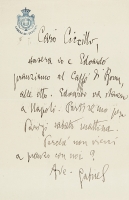 Caro Ciccillo,
stasera io e Edoardo
pranziamo al Caffè di Roma,
alle otto. Edoardo va stanotte
a Napoli. Partiremo per
sabato mattina.
Perché non vieni
a pranzo con noi?
Ave.
Gabriel